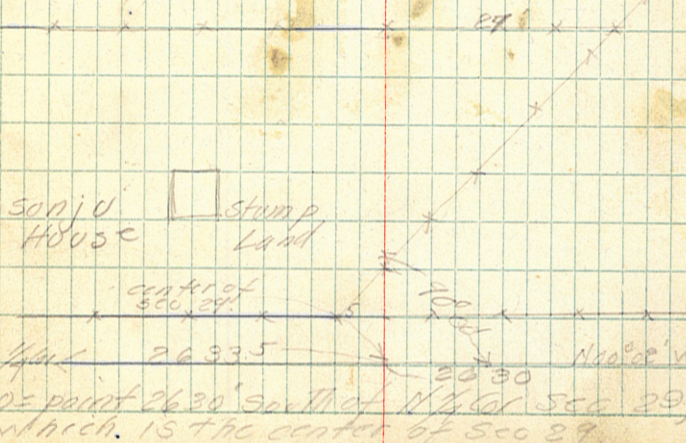 29'
Sonju
House
Stump
Land
center of
sec 29!
5
2633.5
2630
0 = point 2630' South of N 1/4 Cor Sec 29,
which is the center of Sec 29